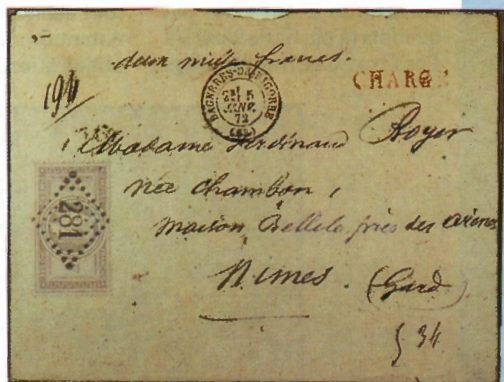 deux mille francs.
194
BAGNERES-DE-BIGORRE
5
JANV.
72
CHARGÉ
Madame Ferdinand Royer
née Chambon,
maison Bellele près des arènes
Nîmes. (Gard)
281
34